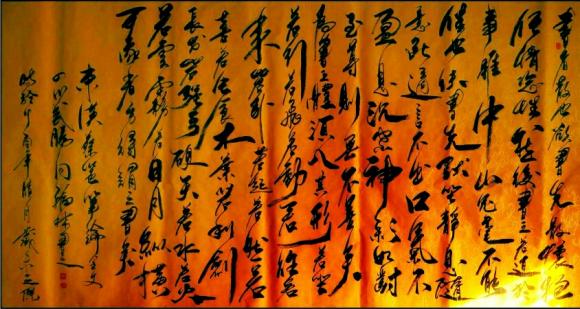 書者散也欲書先散懷抱
任情恣性然後書之若迫於
事雖中山兔毫不能
佳也夫書先默坐靜思隨
意所適言不出口氣不
盈息沉密神彩如對
至尊則無不善矣
為書之體須入其形若坐
若行若飛若動若往若
来若卧若起若愁若
喜若虫食木葉若利劍
長戈若強弓硬矢若水火
若雲霧若日月縱橫
可象者方得謂之書矣
東漢蔡邕筆論全文
四川武勝翰林書